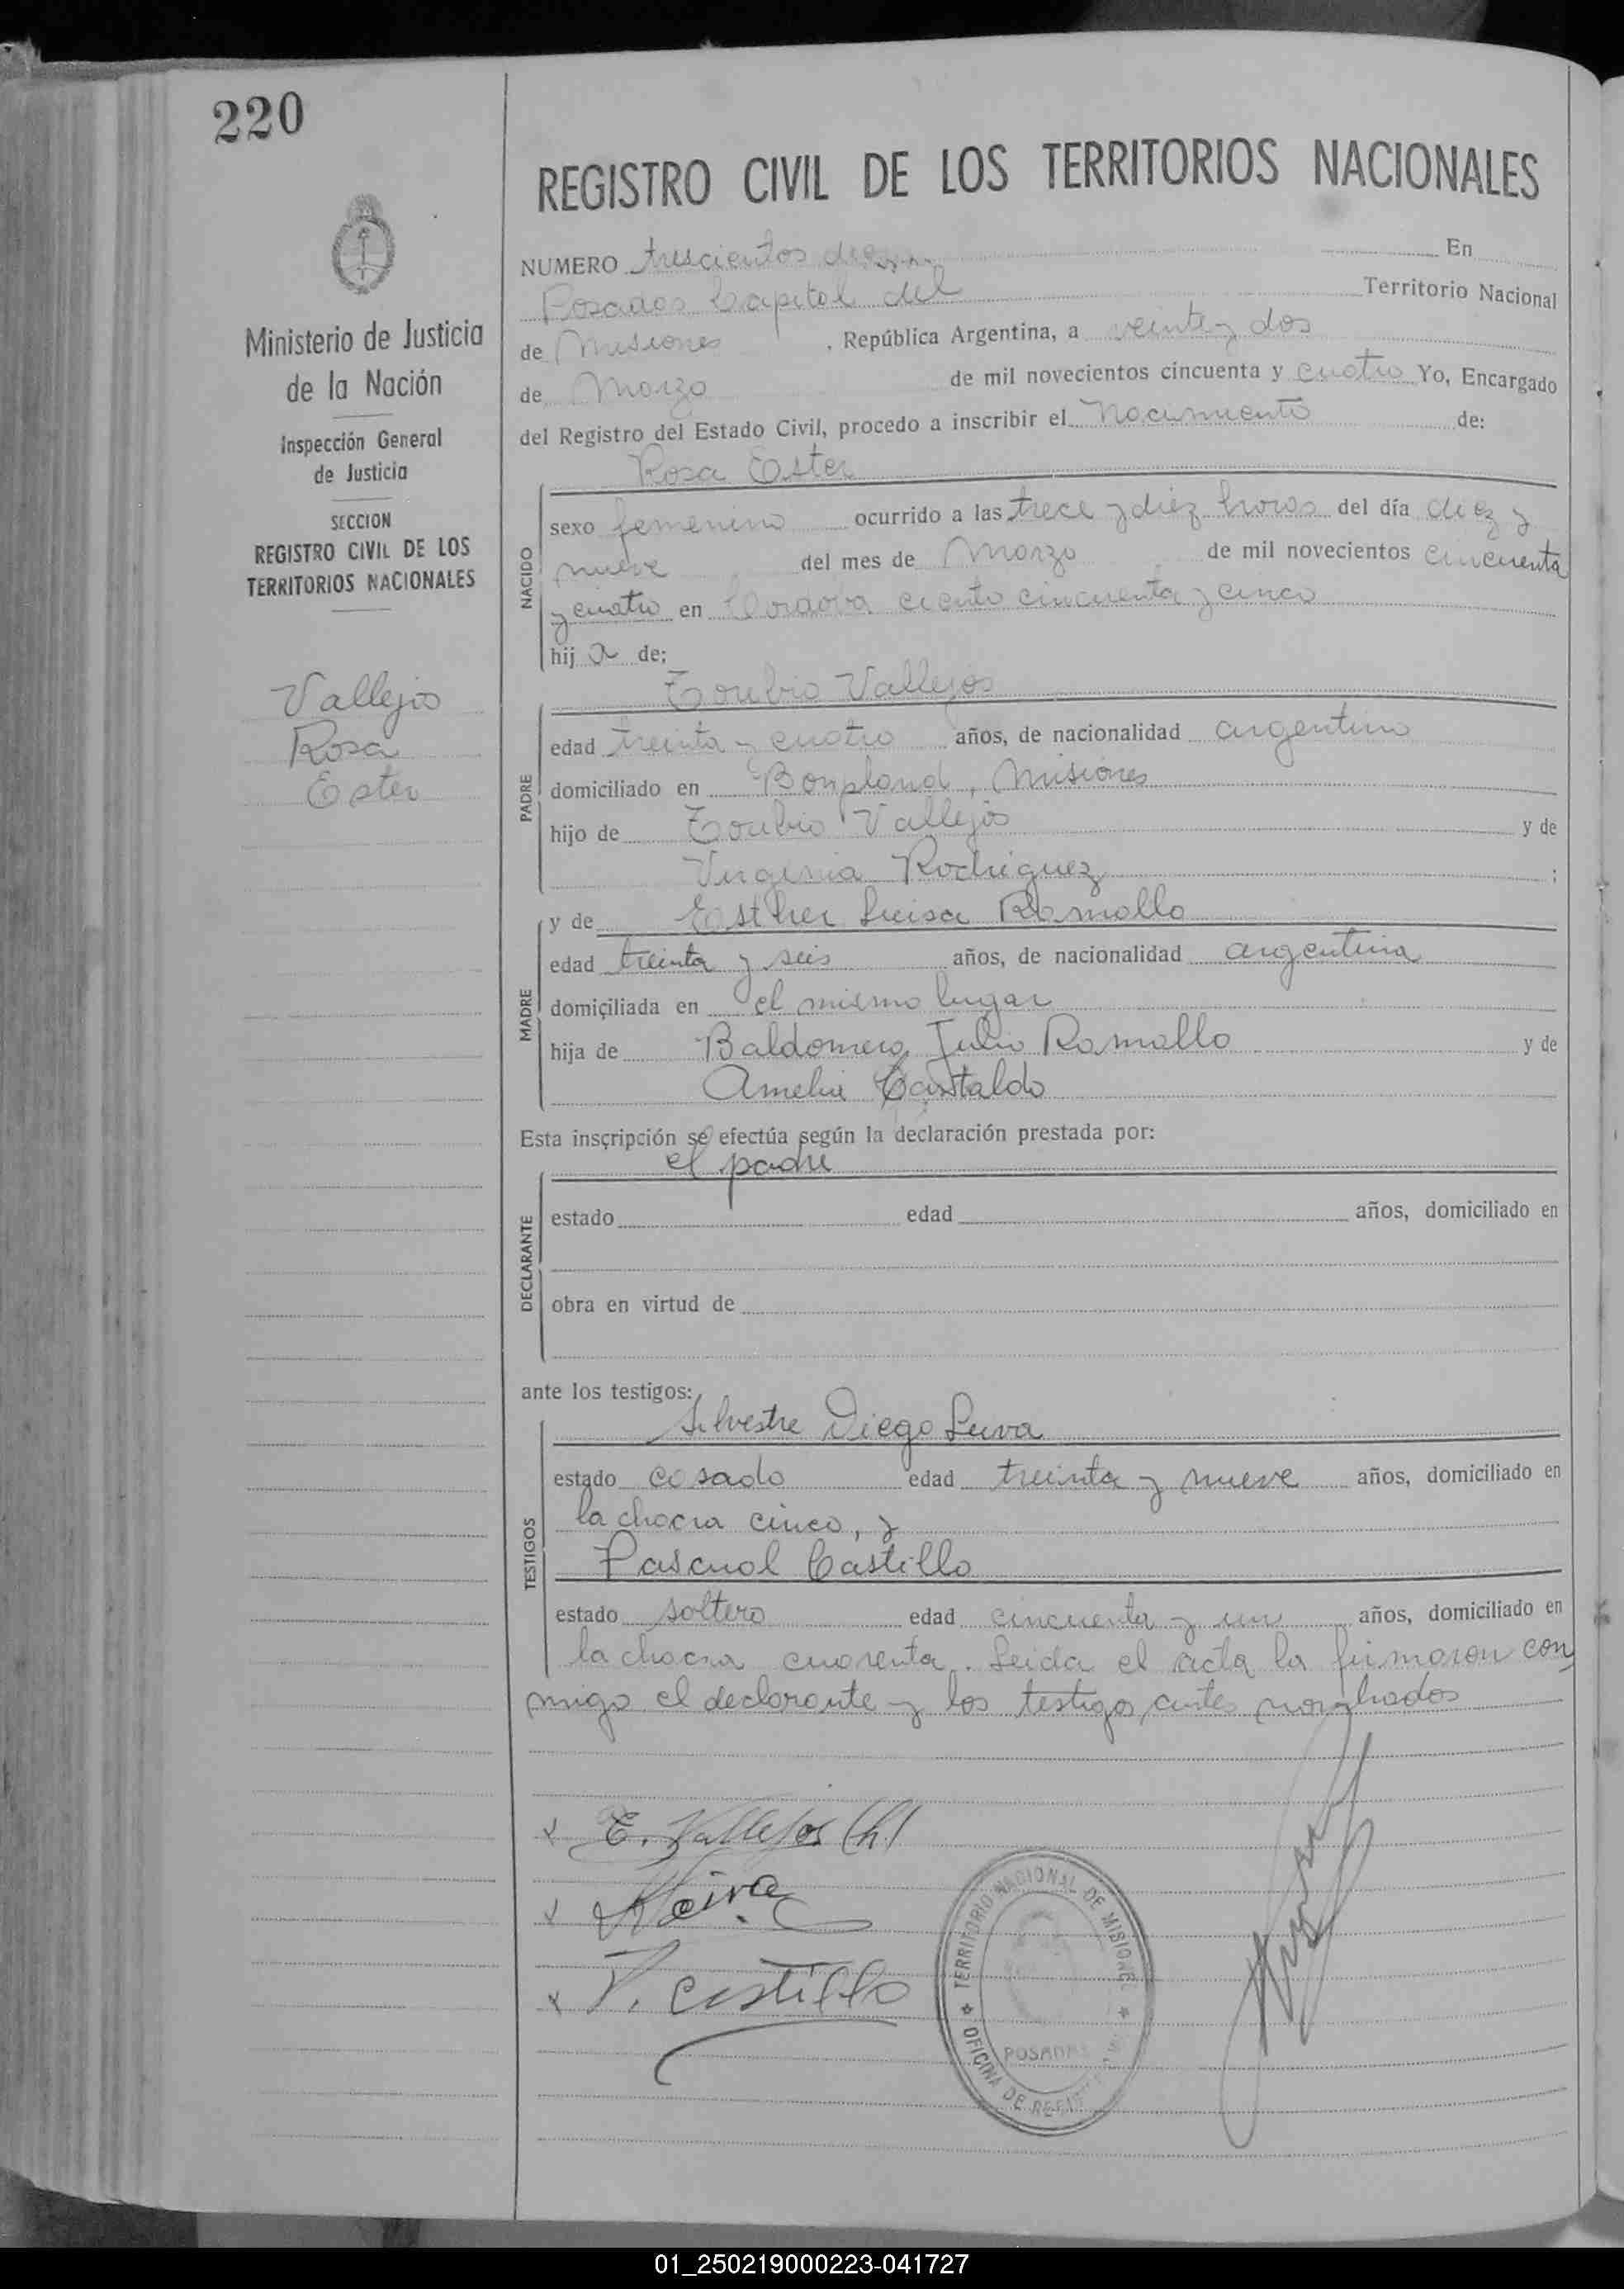 220
REGISTRO CIVIL DE LOS TERRITORIOS NACIONALES
Ministerio de Justicia
de la Nación
Inspección General
de Justicia
SECCION
REGISTRO CIVIL DE LOS
TERRITORIOS NACIONALES
Vallejos
Rosa
Ester
NUMERO trescientos diez En
Posadas Capital del Territorio Nacional
de Misiones, República Argentina, a veinte y dos
de Marzo de mil novecientos cincuenta y cuatro Yo, Encargado
del Registro del Estado Civil, procedo a inscribir el Nacimiento de:
Rosa Ester
NACIDO
sexo femenino ocurrido a las trece y diez horas del día diez y
nueve del mes de Marzo de mil novecientos cincuenta
y cuatro en Cordova ciento cincuenta y cinco
hij a de:
Toribio Vallejos
PADRE
edad treinta y cuatro años, de nacionalidad argentino
domiciliado en Bonpland, Misiones
hijo de Toribio Vallejos y de
Virginia Rodriguez ;
y de Esther Luisa Ramallo
MADRE
edad treinta y seis años, de nacionalidad argentina
domiciliada en el mismo lugar
hija de Baldomero Julio Ramallo y de
Amelia Castaldo
Esta inscripción se efectúa según la declaración prestada por:
el padre
DECLARANTE
estado edad años, domiciliado en
obra en virtud de
ante los testigos:
Silvestre Diego Leiva
TESTIGOS
estado casado edad treinta y nueve años, domiciliado en
la chacra cinco, y
Pascual Castillo
estado soltero edad cincuenta y un años, domiciliado en
la chacra cuarenta. Leida el acta la firmaron con
migo el declarante y los testigos antes nombrados
T. Vallejos (h)
Leiva
P. Castillo
TERRITORIO NACIONAL DE MISIONES
POSADAS
OFICINA DE
01_250219000223-041727